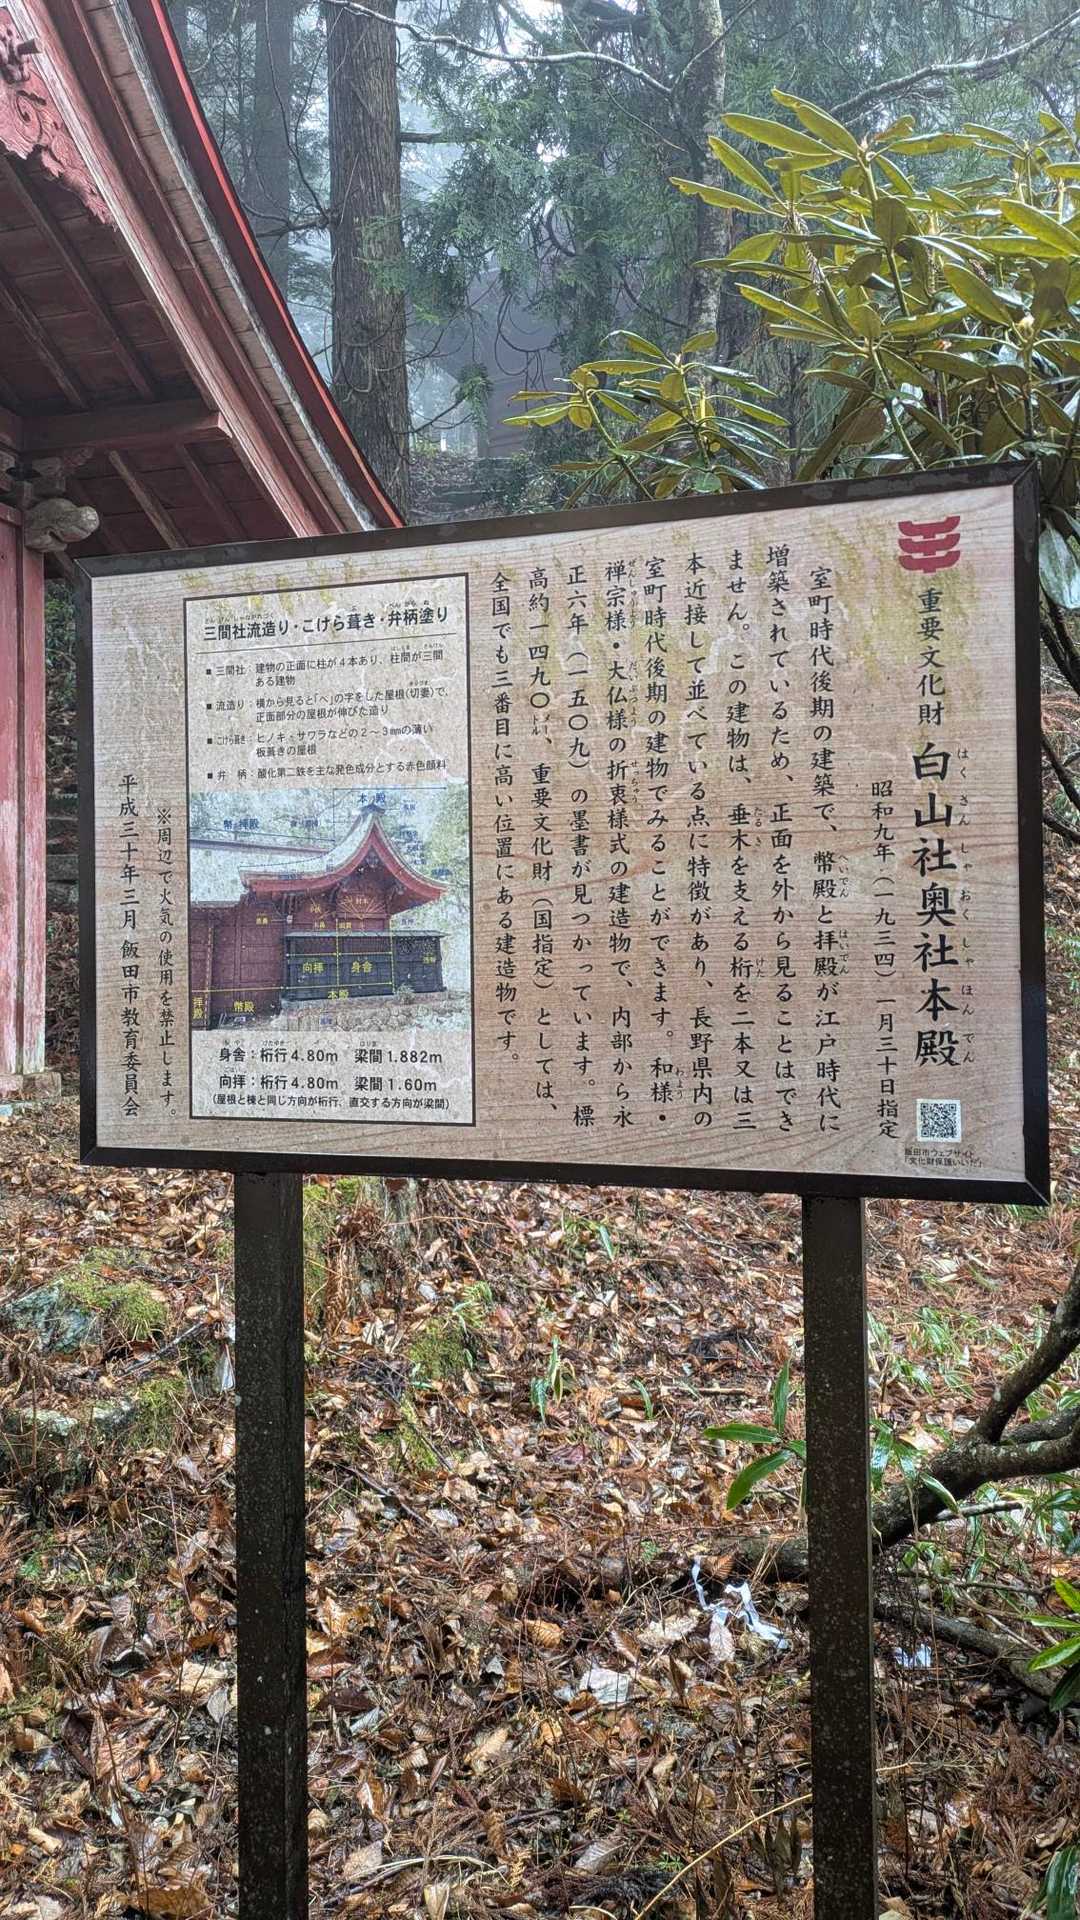 重要文化財 白山社奥社本殿
はくさんしゃおくしゃほんでん
昭和九年（一九三四）一月三十日指定
室町時代後期の建築で、幣殿と拝殿が江戸時代に
へいでん はいでん
増築されているため、正面を外から見ることはでき
ません。この建物は、垂木を支える桁を二本又は三
たるき けた
本近接して並べている点に特徴があり、長野県内の
室町時代後期の建物でみることができます。和様・
わよう
禅宗様・大仏様の折衷様式の建造物で、内部から永
ぜんしゅうよう だいぶつよう せっちゅう
正六年（一五〇九）の墨書が見つかっています。標
高約一四九〇メートル、重要文化財（国指定）としては、
全国でも三番目に高い位置にある建造物です。
飯田市ウェブサイト
「文化財保護いいだ」
さんけんしゃながれづくり ぶ べんがらぬ
三間社流造り・こけら葺き・弁柄塗り
■三間社：建物の正面に柱が４本あり、柱間が三間
はしらま さんけん
ある建物
■流造り：横から見ると「へ」の字をした屋根（切妻）で、
きりづま
正面部分の屋根が伸びた造り
■こけら葺き：ヒノキ・サワラなどの２～３㎜の薄い
板葺きの屋根
■弁 柄：酸化第二鉄を主な発色成分とする赤色顔料
本 殿
幣・拝殿
向拝
身舎
本殿
幣殿
拝殿
もや けたゆき はりま
身舎：桁行4.80m 梁間1.882m
ごはい
向拝：桁行4.80m 梁間1.60m
（屋根と棟と同じ方向が桁行、直交する方向が梁間）
※周辺で火気の使用を禁止します。
平成三十年三月 飯田市教育委員会